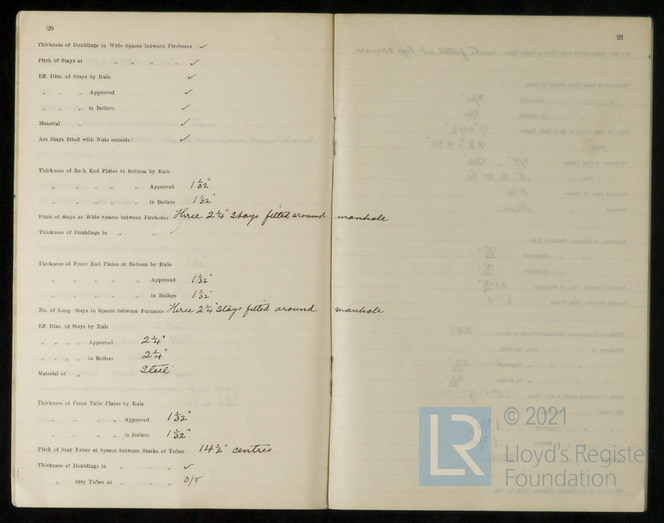 20
Thickness of Doublings in Wide Spaces between Fireboxes ✓
Pitch of Stays at " " " " ✓
Eff. Diar. of Stays by Rule ✓
" " " Approved ✓
" " " in Boilers ✓
Material " ✓
Are Stays fitted with Nuts outside? ✓
Thickness of Back End Plates at Bottom by Rule
" " " " " Approved 1 1/32"
" " " " " in Boilers 1 1/32"
Pitch of Stays at Wide Spaces between Fireboxes Three 2 1/4" Stays fitted around manhole
Thickness of Doublings in " "
Thickness of Front End Plates at Bottom by Rule
" " " " " Approved 1 1/32"
" " " " " in Boilers 1 1/32"
No. of Long. Stays in Spaces between Furnaces Three 2 1/4" Stays fitted around manhole
Eff. Diar. of Stays by Rule
" " " " Approved 2 1/4"
" " " " in Boilers 2 1/4"
Material of " Steel
Thickness of Front Tube Plates by Rule
" " " " " Approved 1 1/32"
" " " " " in Boilers 1 1/32"
Pitch of Stay Tubes at Spaces between Stacks of Tubes 14 1/2" centres
Thickness of Doublings in " " " ✓
" Stay Tubes at " "
21
LR
© 2021
Lloyd's Register
Foundation